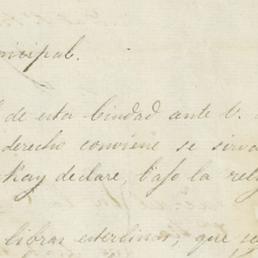 ncipal.
de esta Ciudad ante V.
derecho conviene se sirva
declare, bajo la
libras esterlinas, que